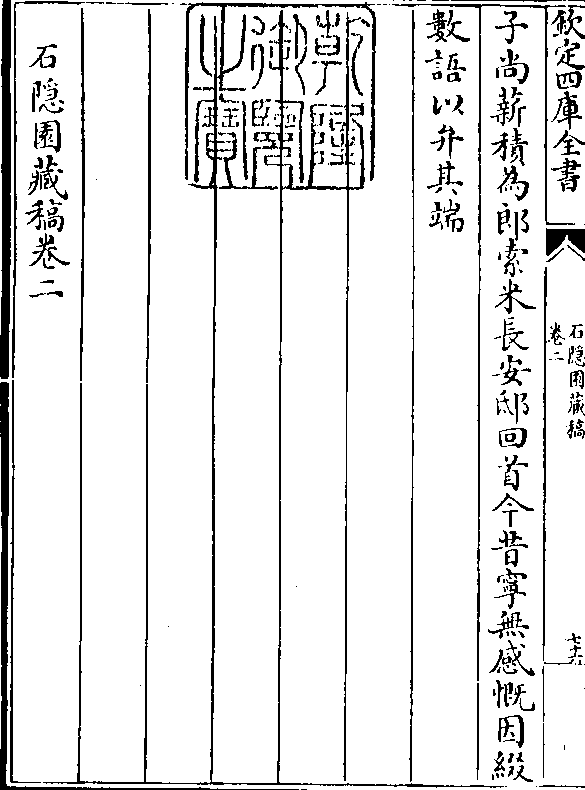 欽定四庫全書
石隠園藏稿
卷二
七十六
子尚薪積為郎索米長安邸回首今昔寧無感慨因綴
數語以弁其端
乾隆御覽之寶
石隠園藏稿卷二